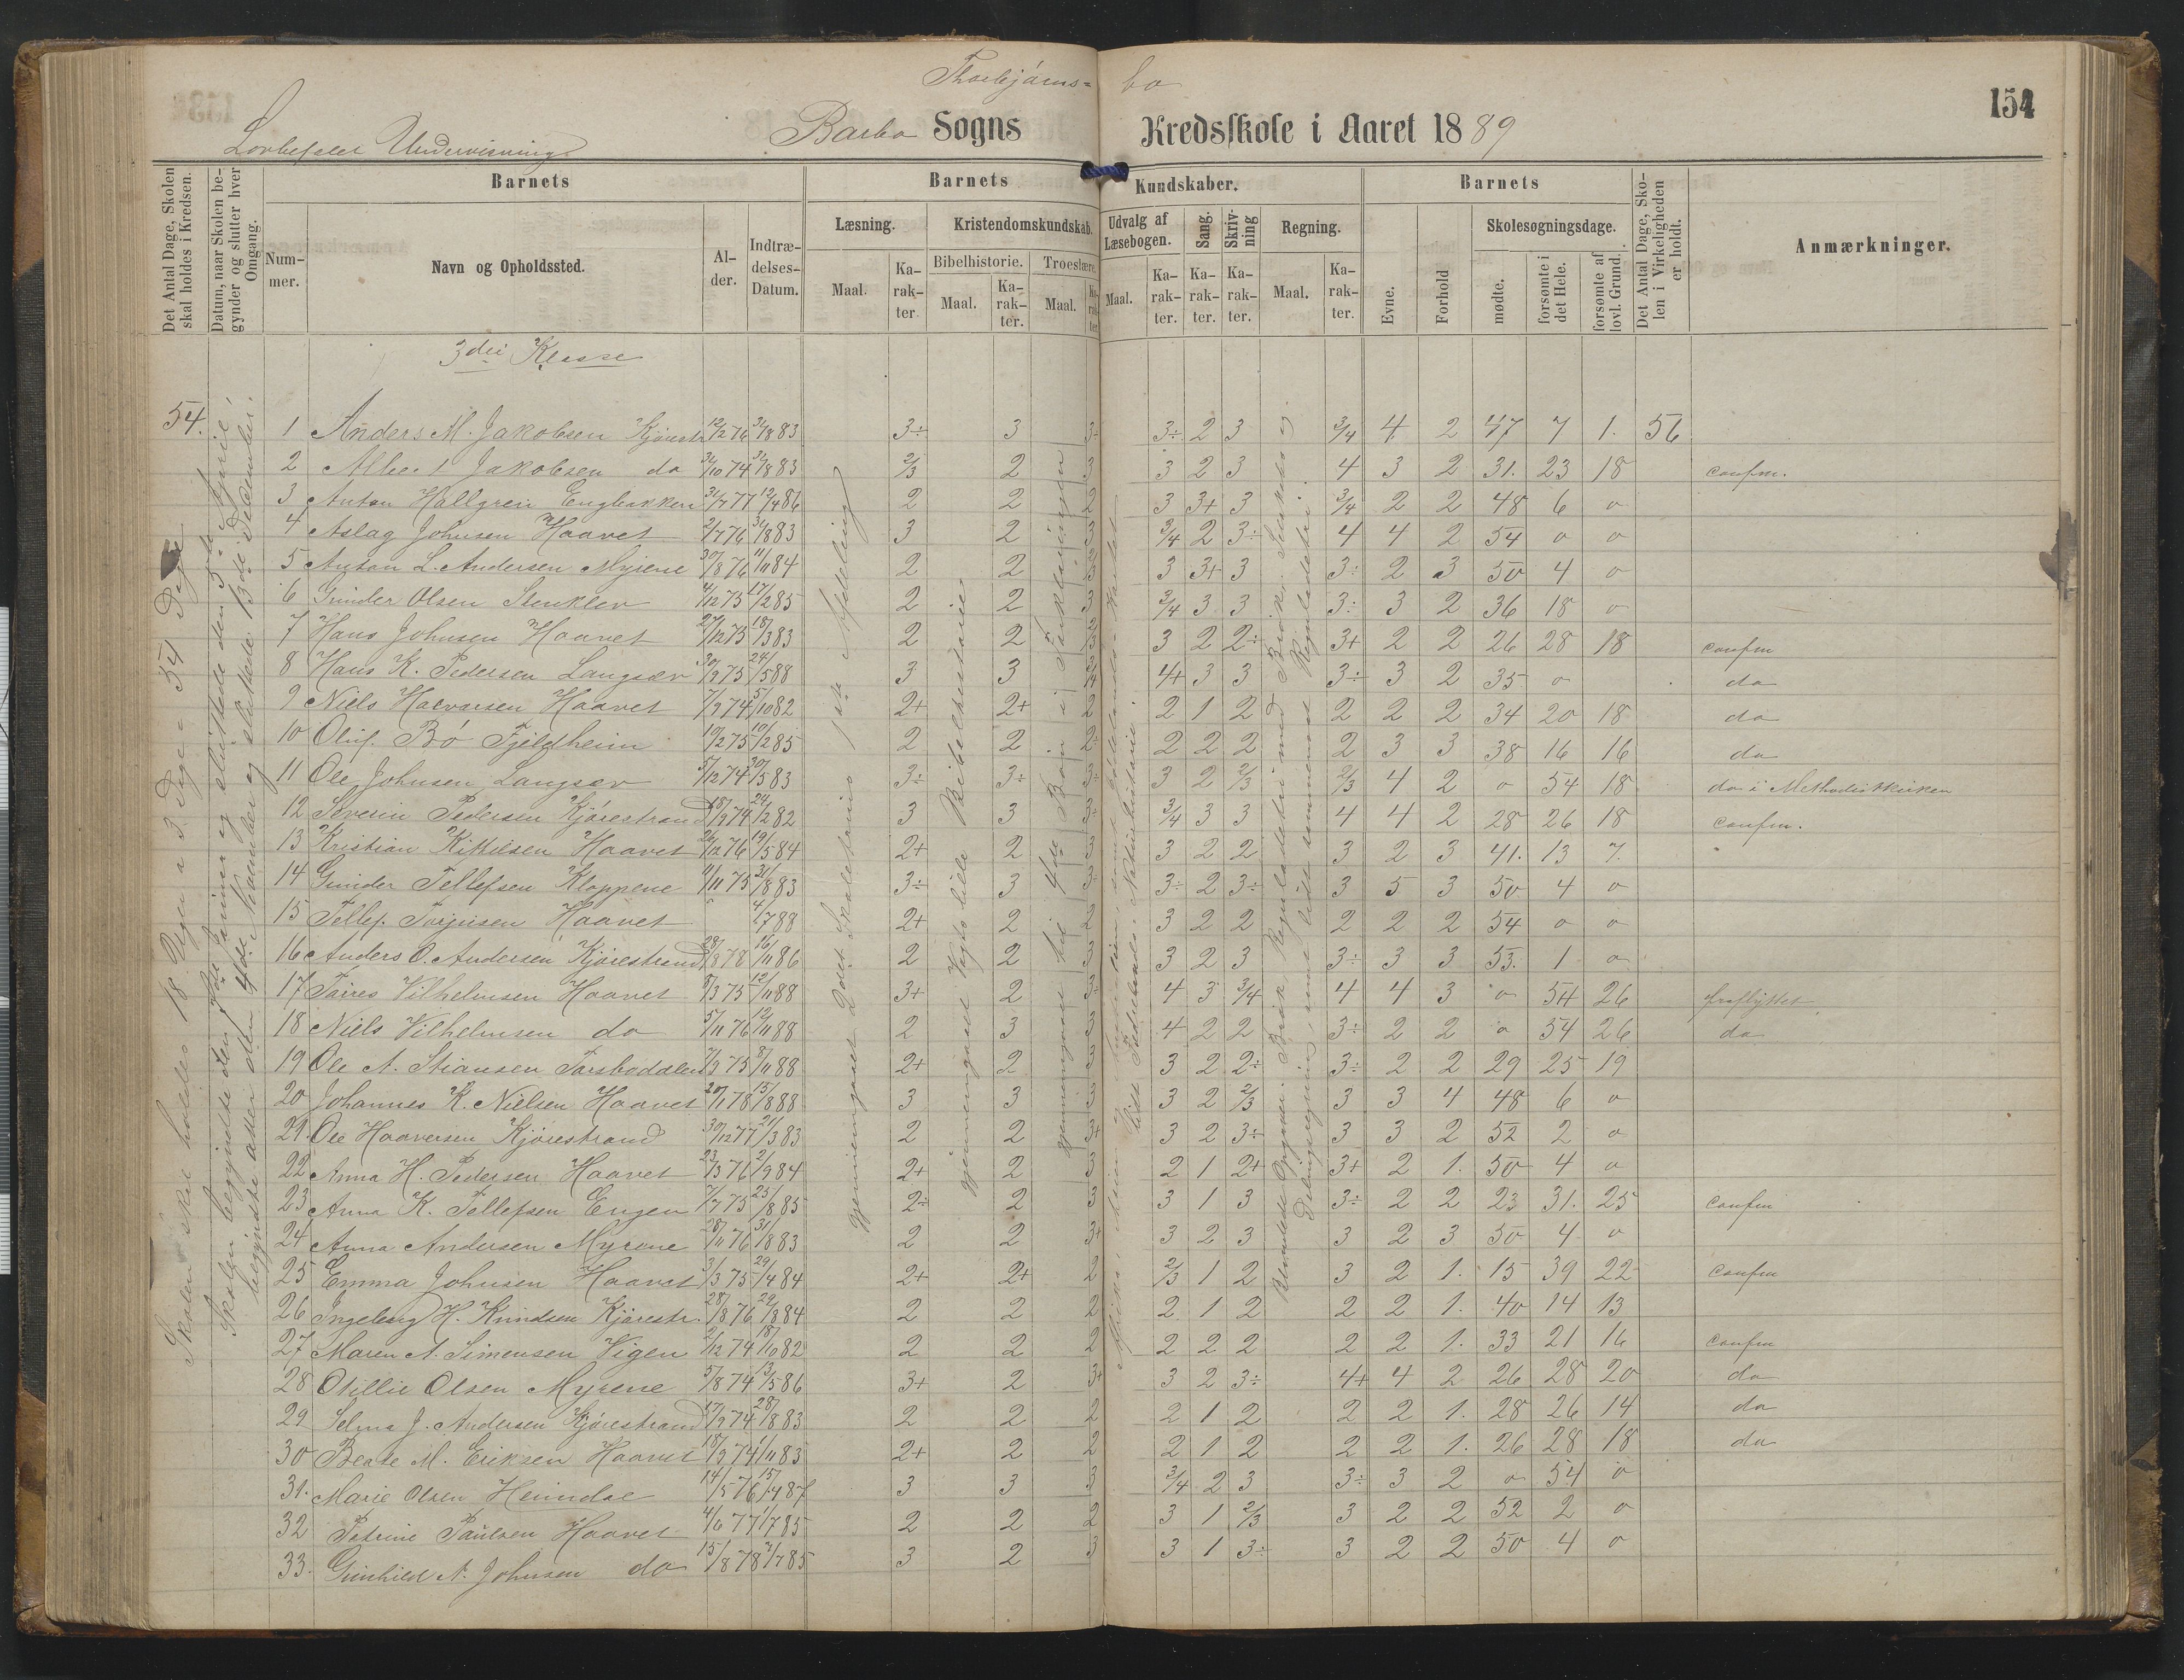 Thorbjørns= bo
154
Lovbefalet Undervisning.
Barbo Sogns Kredsskole i Aaret 1889
Det Antal Dage, Skolen skal holdes i Kredsen.
Datum, naar Skolen begynder og slutter hver Omgang.
Barnets
Nummer.
Navn og Opholdssted.
Alder.
Indtrædelses-Datum.
Barnets Kundskaber.
Læsning.
Maal.
Karakter.
Kristendomskundskab.
Bibelhistorie.
Maal.
Karakter.
Troeslære.
Maal.
Karakter.
Udvalg af Læsebogen.
Maal.
Karakter.
Sang.
Karakter.
Skrivning
Karakter.
Regning.
Maal.
Karakter.
Barnets
Evne.
Forhold
Skolesøgningsdage.
mødte.
forsømte i det Hele.
forsømte af lovl. Grund.
Det Antal Dage, Skolen i Virkeligheden er holdt.
Anmærkninger.
3die Klasse
54.
Skolen skal holdes 18 Uger a 3 Dage = 54 Dage
begyndte atter den 4de November og sluttede 13de December.
gjennemgaaet 2det Skoletrins 1ste Afdeling
gjennemgaaet Vogts lille Bibelhistorie
gjennemgaaet til 4de Bøn i Forklaringen
1 Anders M. Jakobsen Kjørestr 12/2 76 31/8 83 3÷ 3 3÷ 3÷ 2 3 3/4 4 2 47 7 1. 56
2 Albert Jakobsen do 31/10 74 31/8 83 2/3 2 3 3 2 3 4 3 2 31. 23 18 confm.
3 Anton Hallgren Engbakken 31/7 77 12/4 86 2 2 2 3 3+ 3 3/4 2 2 48 6 o
4 Aslag Johnsen Haavet 2/7 76 31/8 83 3 2 3 3/4 2 3÷ 4 4 2 54 o o
5 Anton L. Andersen Myrene 30/8 76 11/11 84 2 2 3 3 3+ 3 3÷ 2 3 50 4 o
6 Gunder Olsen Stenklev 4/12 75 17/2 85 2 2 3 3/4 3 3 3÷ 3 2 36 18 o
7 Hans Johnsen Haavet 27/12 75 18/3 83 2 2 2/3 3 2 2÷ 3+ 2 2 26 28 18 confm
8 Hans K. Pedersen Langsæv 30/9 75 24/5 88 3 3 3/4 4+ 3 3 3÷ 3 2 35 o do
9 Niels Halvorsen Haavet 7/9 74 5/10 82 2+ 2+ 2 2 1 2 2 2 2 34 20 18 do
10 Oluf Bø Fjeldheim 10/2 75 10/2 85 2 2 2÷ 2 2 2 2 3 3 38 16 16 do
11 Ole Johnsen Langsæv 5/12 74 30/5 83 3÷ 3÷ 3÷ 3 2 2/3 2/3 4 2 o 54 18 do i Methodistkirken
12 Severin Pedersen Kjørestrand 18/9 74 24/2 82 3 3 3÷ 3/4 3 3 4 4 2 28 26 18 confm.
13 Kristian Kittelsen Haavet 26/12 76 19/5 84 2+ 2 3 3 2 2 3 2 3 41. 13 7.
14 Gunder Tellefsen Kloppene 11/11 75 31/8 83 3÷ 3 3÷ 3÷ 2 3÷ 3 5 3 50 4 o
15 Tellef. Torjusen Haavet 4/7 88 2+ 2 2 3 2 2 2 2 2 54 o o
16 Anders O. Andersen Kjørestrand 28/8 78 16/11 86 2 2 3 3 2 3 3÷ 3 3 53. 1 o
17 Vilhelmsen Haavet 3/3 75 12/11 88 3+ 2 3÷ 4 3 3/4 4 4 3 o 54 26 fraflyttet
18 Niels Vilhelmsen do 5/11 76 12/11 88 2 3 3 4 2 2 3÷ 2 2 o 54 26 do
19 Ole A. Stiansen 7/3 75 8/11 88 2+ 2 3 3 2 2÷ 3÷ 2 2 29 25 19
20 Johannes K. Nielsen Haavet 20/1 78 15/8 88 3 3 3 3 2 2/3 3 3 4 48 6 o
21. Ole Haaversen Kjørestrand 30/12 77 21/3 83 2 2 3+ 3 2 3÷ 3 3 2 52 2 o
22 Anna H. Pedersen Haavet 23/3 76 2/9 84 2+ 2 3 2 1 2+ 3+ 2 1. 50 4 o
23 Anna K. Tellefsen Engen 7/7 75 25/8 85 2÷ 2 3 3 1 3 3÷ 2 2 23 31. 25 confm
24 Anna Andersen Myrene 28/11 76 31/8 83 2 2 3+ 3 2 3 3 2 3 50 4 o
25 Emma Johnsen Haavet 3/3 75 29/4 84 2+ 2+ 2 2/3 1 2 3 2 1. 15 39 22 confm
26 Ingeborg H. Knudsen Kjørestr. 28/8 76 29/8 84 2 2 2 2 1 2 2 2 1. 40 14 13
27 Maren A. Simensen Vigen 2/12 74 18/10 82 2 2 2 2 2 2 2 2 1. 33 21 16 confm
28 Otillie Olsen Myrene 5/8 74 13/5 86 3+ 2 3+ 3 2 3÷ 4+ 4 2 26 28 20 do
29 Selma J. Andersen Kjørestrand 17/9 74 28/8 83 2 2 2 2 1 2 2 2 1. 28 26 14 do
30 Beate M. Eriksen Haavet 18/9 74 1/11 83 2+ 2 2 2 1 2 2 2 1. 26 28 18 do
31. Marie Olsen Heimdal 14/5 76 15/4 87 3 3 3 3/4 2 3 3÷ 3 2 o 54 o
32 Petrine Paulsen Haavet 4/6 77 1/7 85 2 2 2 3 1 2/3 3 2 2 52 2 o
33. Gunhild A. Johnsen do 15/8 78 3/7 85 3 2 3 3 1 3÷ 3 2 2 50 4 o